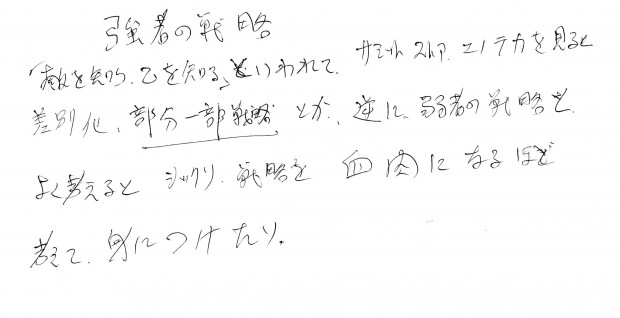 強者の戦略
「敵を知り、己を知る」といわれて、サミットストア、エノテカを見ると
差別化、部分一部戦略、とか、逆に、弱者の戦略を、
よく考えると シックリ、戦略を 血肉になるほど
考えて、身につけたり。